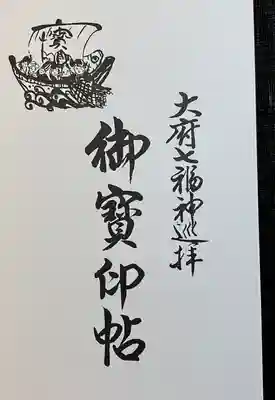 大府七福神巡拝
御寳印帖
寳